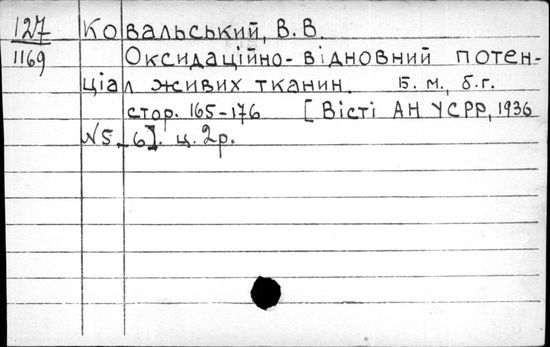 127 Ковальський, В. В.
1169 Оксидаційно-відновний потен-
ціал живих тканин. Б. м., б. г.
стор. 165-176 [Вісті АН УСРР, 1936
№5-6]. ц. 2р.